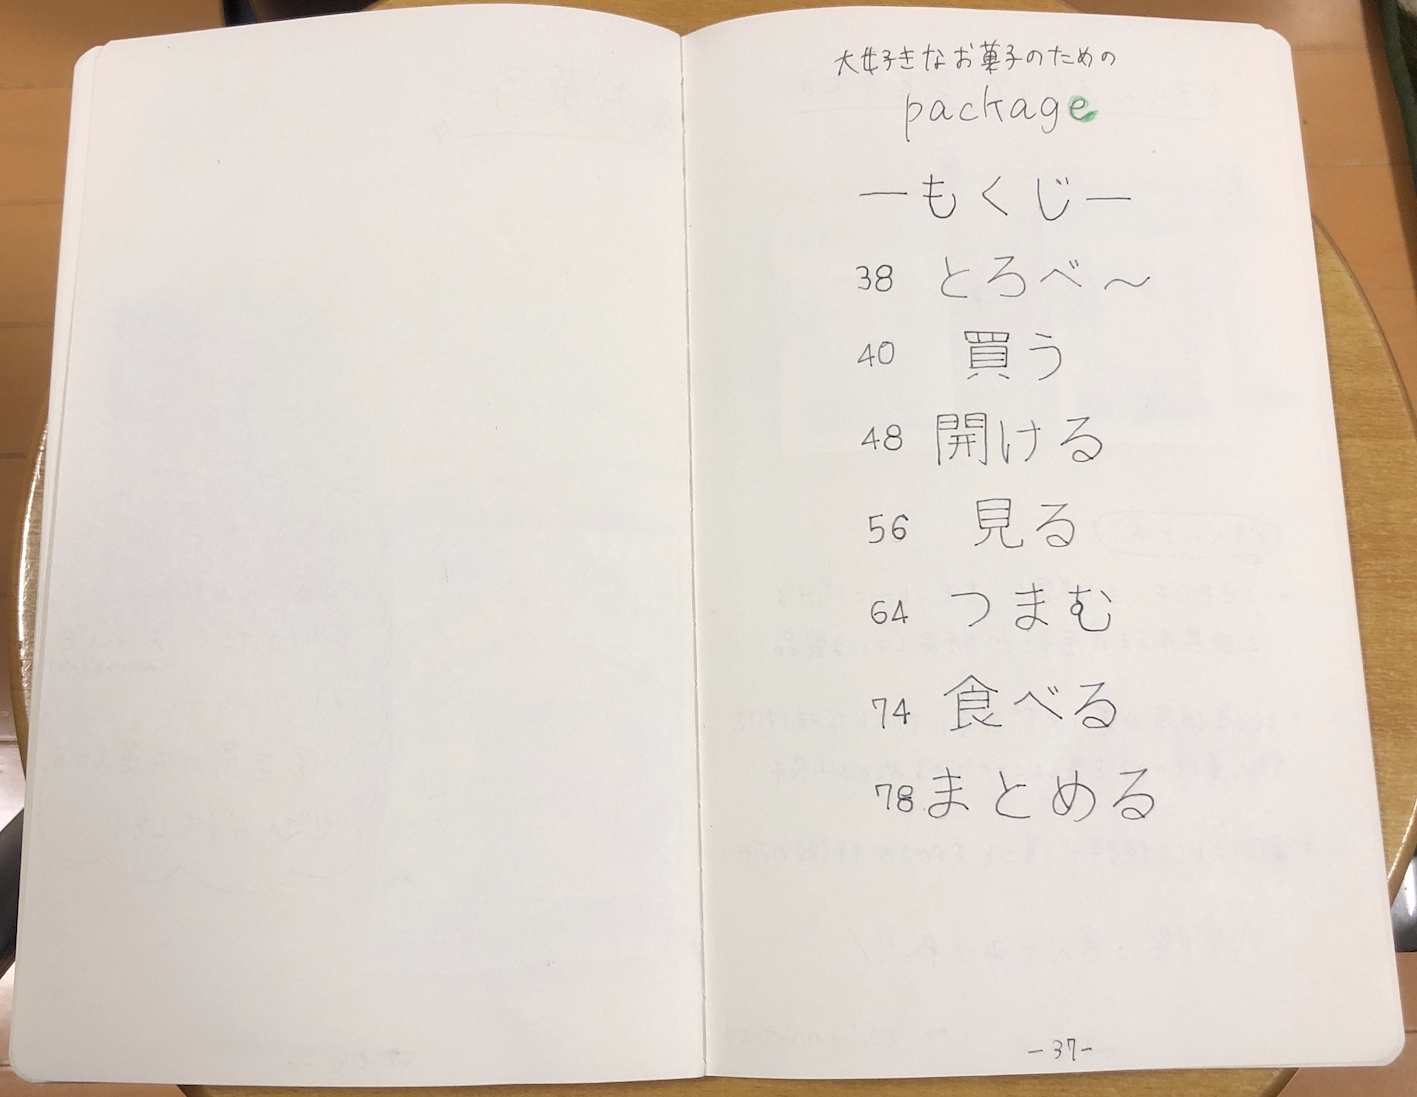 大好きなお菓子のための
package
ーもくじー
38 とろべ〜
40 買う
48 開ける
56 見る
64 つまむ
74 食べる
78 まとめる
-37-